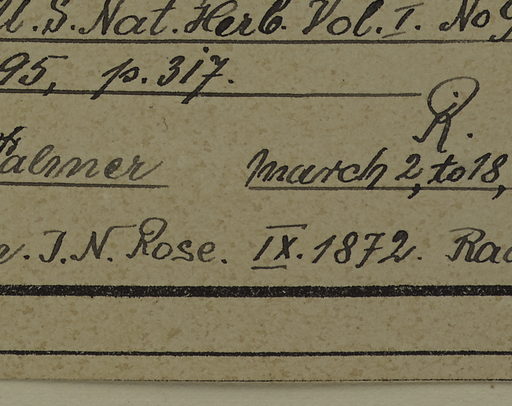 U.S. Nat. Herb. Vol. I. No 9
95, p. 317.
R.
almer March 2, to 18,
J. N. Rose. IX. 1872.